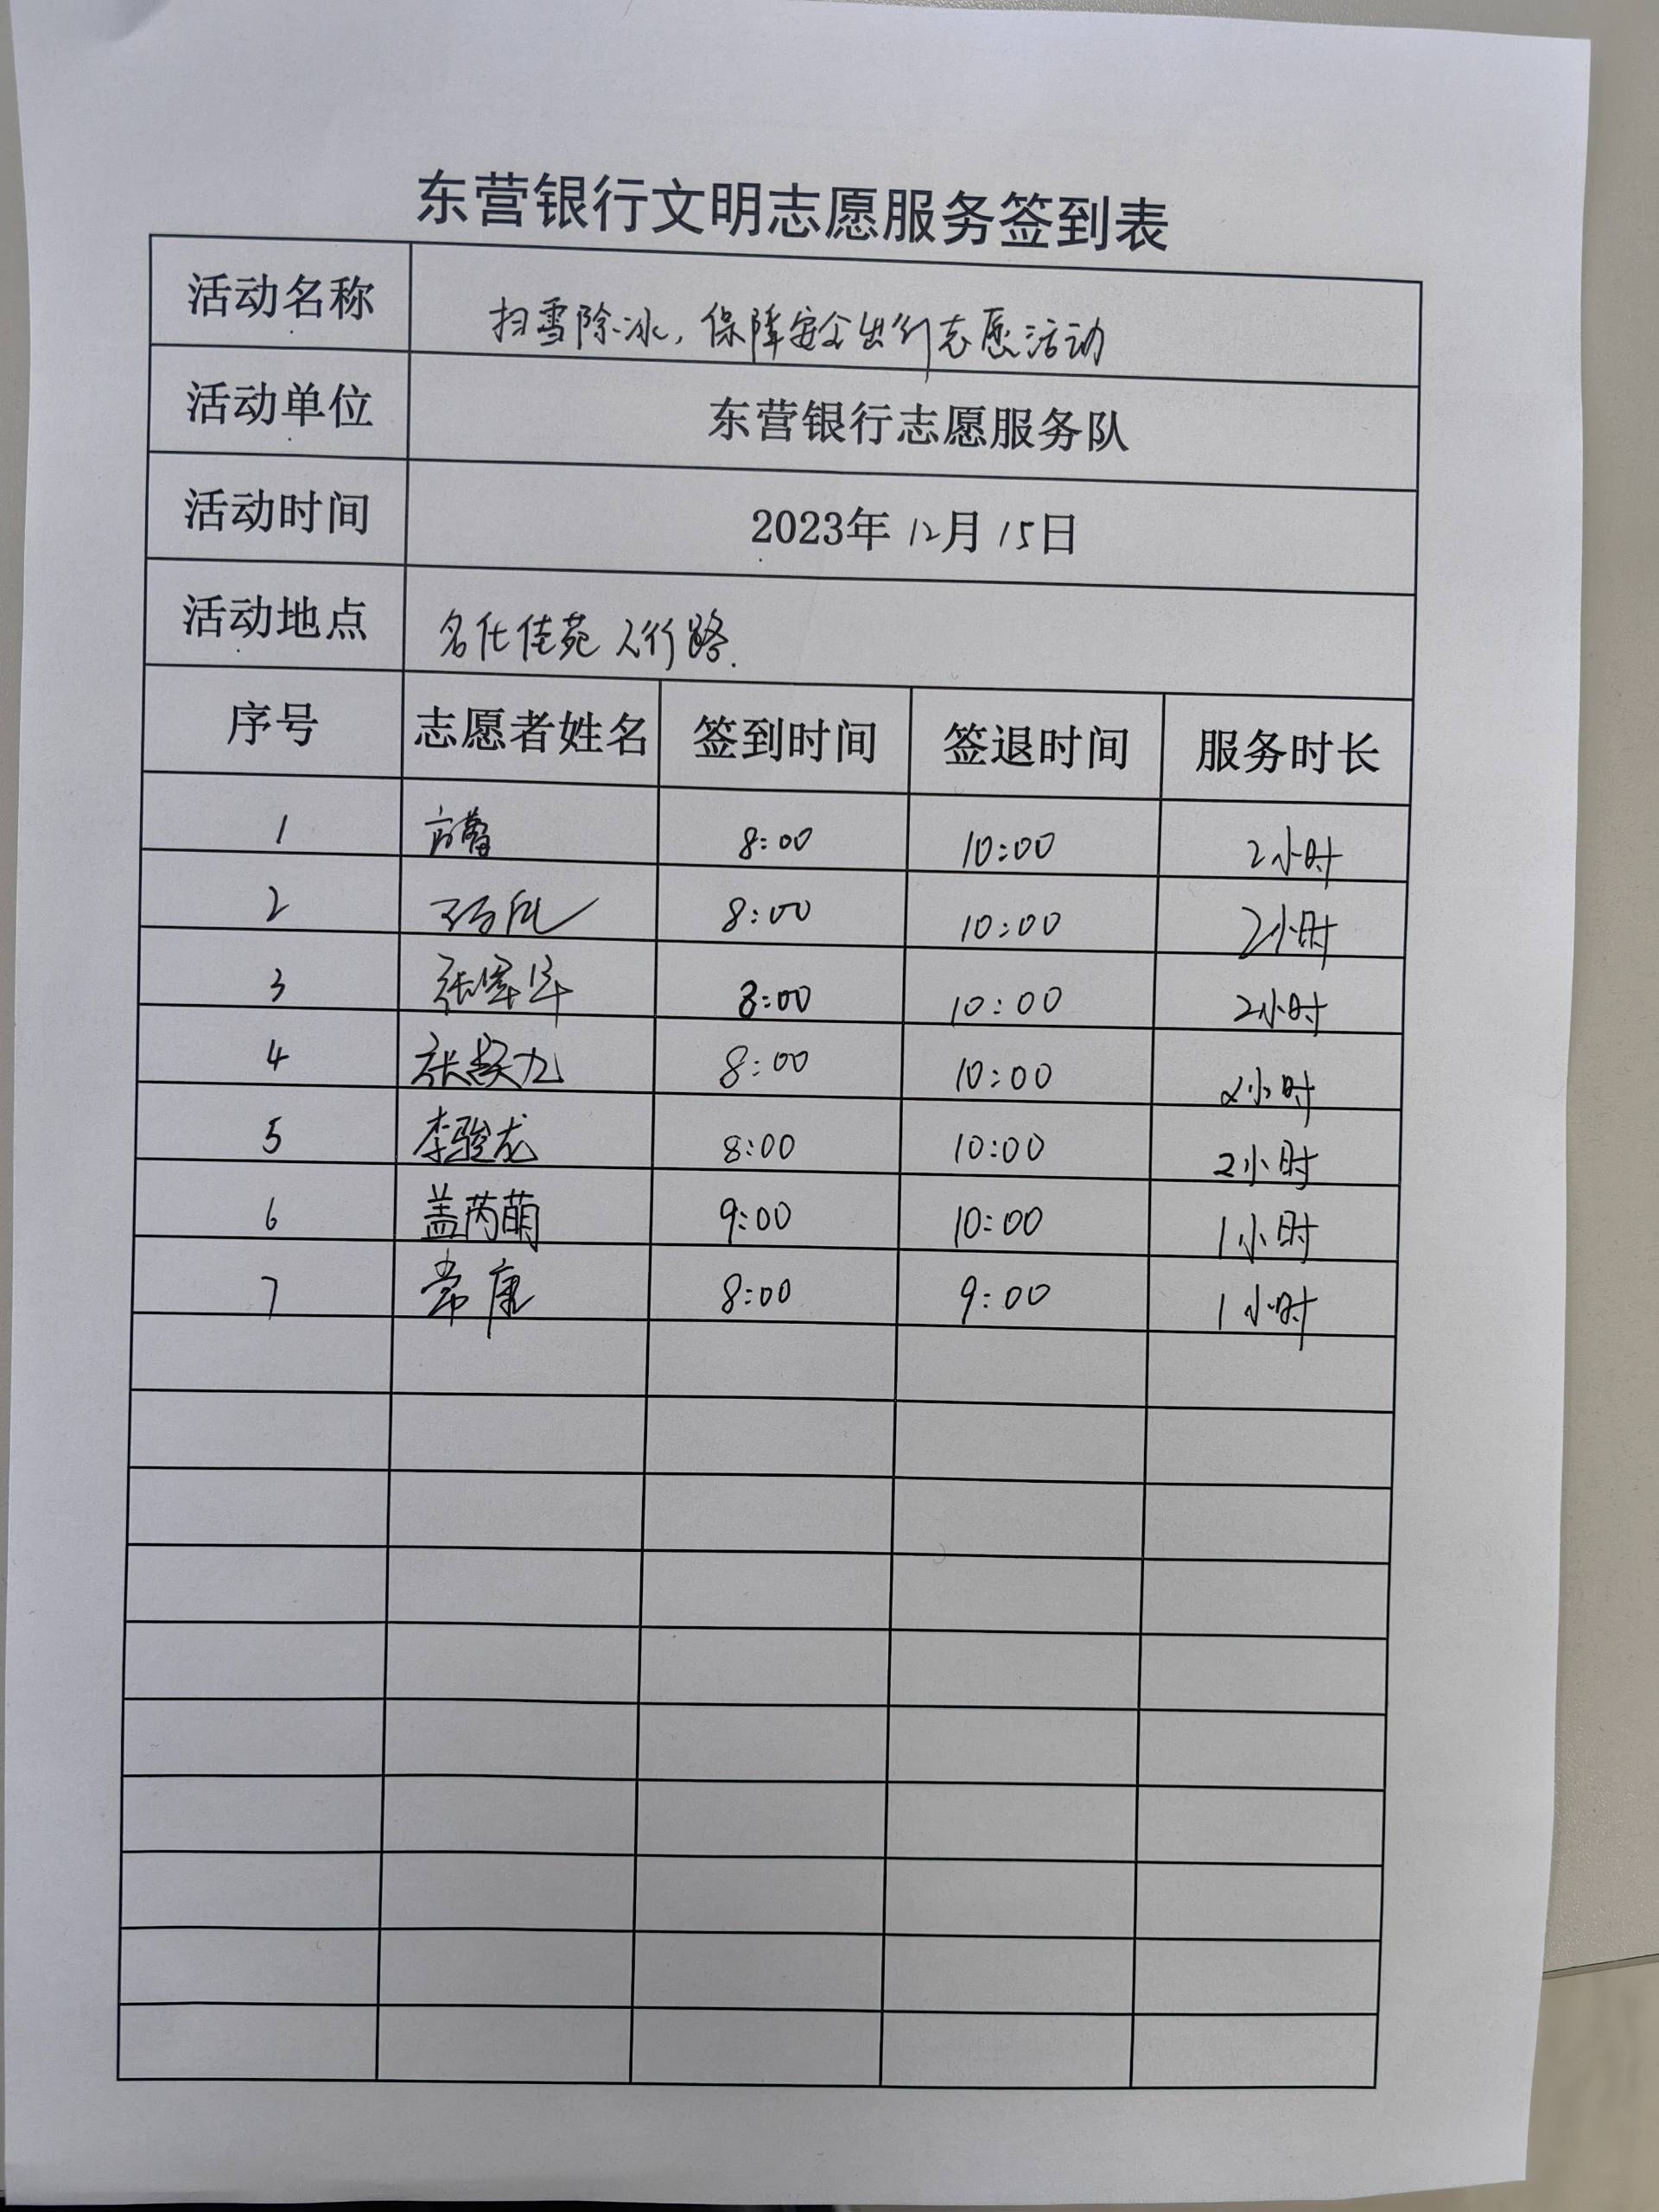 东营银行文明志愿服务签到表
活动名称 扫雪除冰，保障安全出行志愿活动
活动单位 东营银行志愿服务队
活动时间 2023年12月15日
活动地点 名仕佳苑人行路.
序号 志愿者姓名 签到时间 签退时间 服务时长
1 8:00 10:00 2小时
2 8:00 10:00 2小时
3 张军军 8:00 10:00 2小时
4 8:00 10:00 2小时
5 李骏龙 8:00 10:00 2小时
6 盖芮萌 9:00 10:00 1小时
7 常康 8:00 9:00 1小时